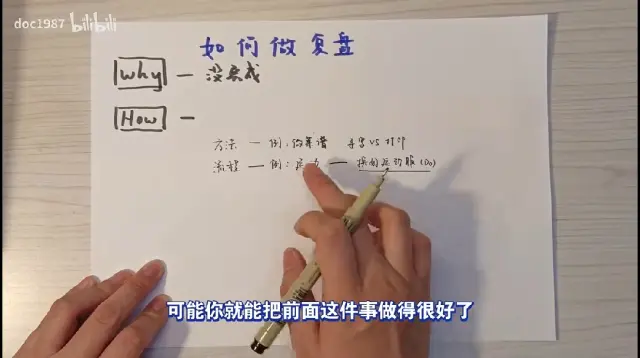 doc1987 bilibili
如何做复盘
Why — 没完成
How —
方法 — 例：做菜谱 手写VS打印
流程 — 例：运动 — 换的运动服(Do)
可能你就能把前面这件事做得很好了